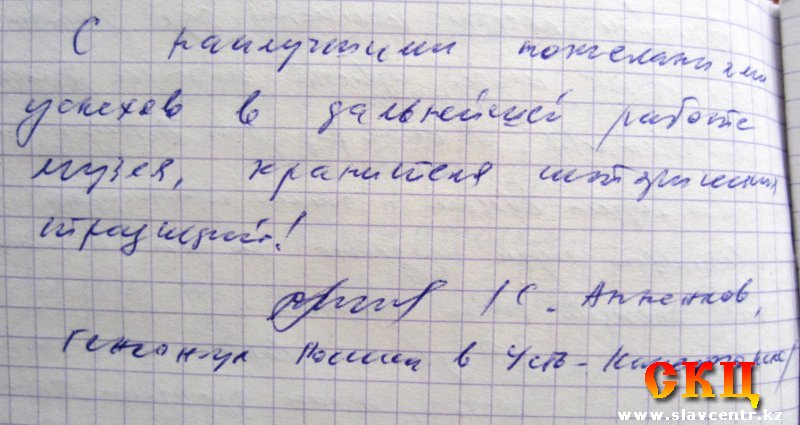 С наилучшими пожеланиями
успехов в дальнейшей работе
музея, хранителя исторических
традиций!
/С. Анненков,
генконсул России в Усть-Каменогорске/
СКЦ
www.slavcentr.kz